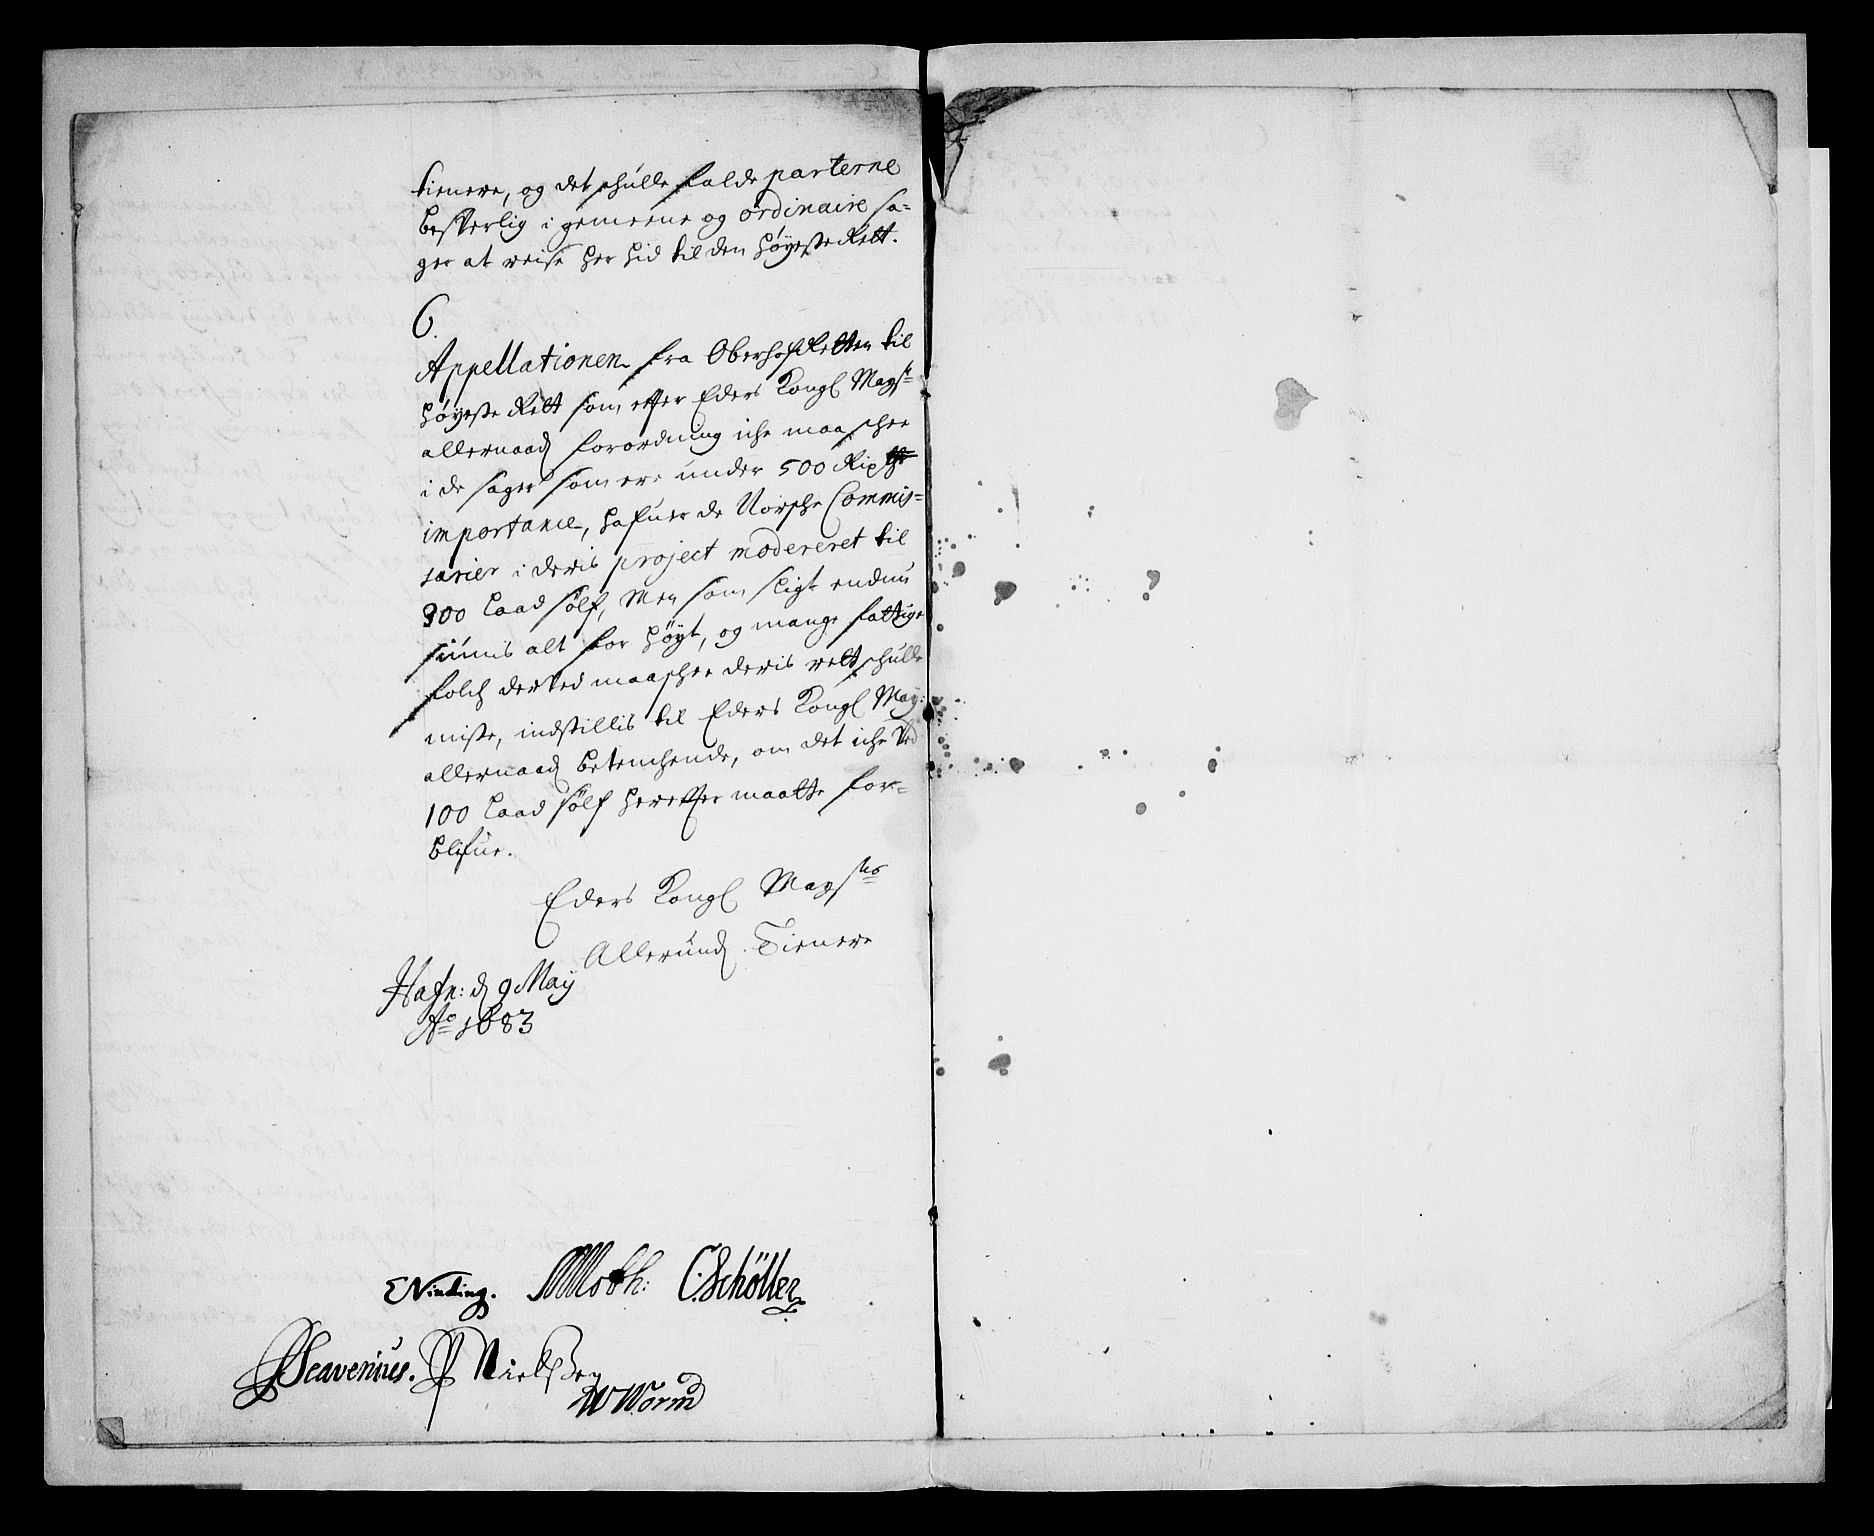 tienere, og det schulle falde parterne
besverlig i gemeene og ordinaire sa-
ger at reise her hid til den høyeste Rett.
6.
Appellationen fra OberhofRetten til
høyeste Rett som effter Eders Kongl Mayst
allernaad forordning iche maa schee
i de sager som ere under 500 Rix
importance, hafuer de Norsche Commis-
sarier i deris project modereret til
300 Laad sølf, Men som sligt endnu
siunis alt for høyt, og mange fattige
folch derVed maaschee deris rett schulle
miste, indstillis til Eders Kongl May:
allernaad betenchende, om det iche Ved
100 Laad sølf hereffter maatte for-
blifue.
Eders Kongl Maysts
Allerund. Tienere
Hafn: d 9 May
Ao 1683
ENinding. MMoth: C:Schöller
PScavenius. P Nielsßen
WWorm